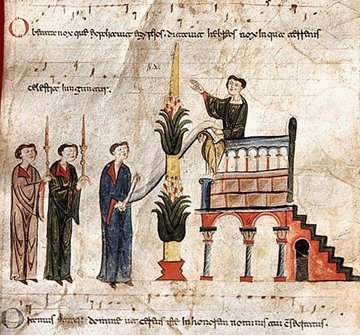 O beata nox que expoliauit egyptios. ditauit hebreos nox in qua terrenis
celestia iunguntur.
Oramus domine ut cereus iste in honorem nominis tui consecratus